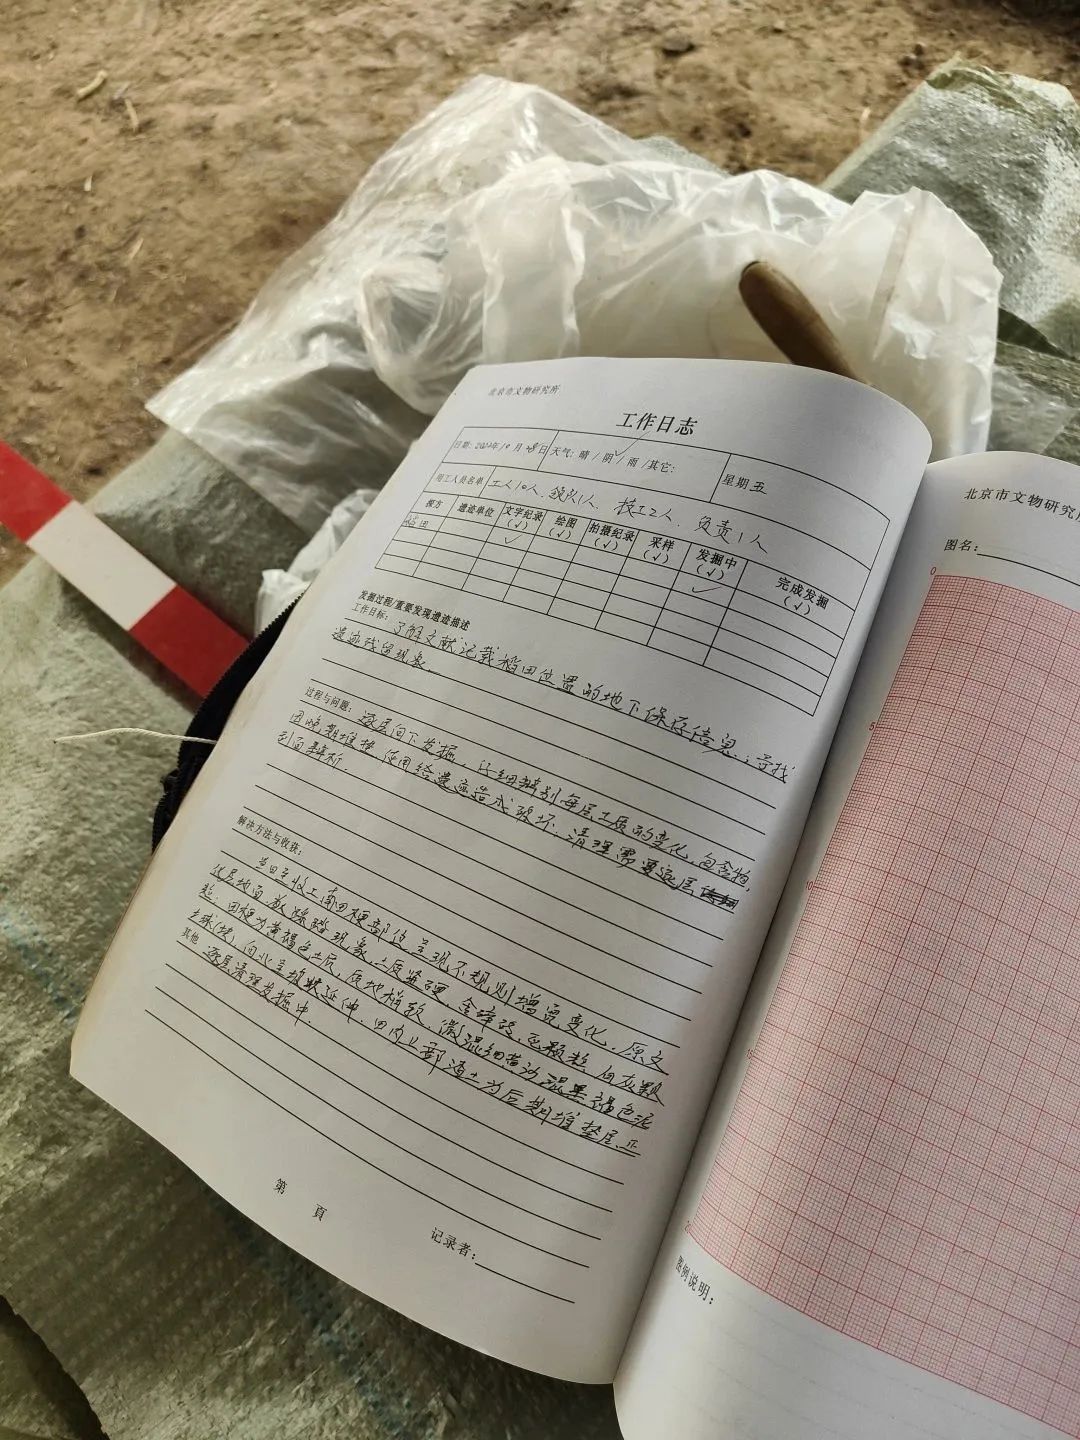 北京市文物研究所
工作日志
日期: 2022年10月28日 天气: 晴 / 阴 / 雨 / 其它: 星期 五
用工人员名单 工人10人、领队1人、技工2人、负责1人
探方 遗迹单位 文字纪录(√) 绘图(√) 拍摄纪录(√) 采样(√) 发掘中(√) 完成发掘(√)
稻田 ✓ ✓
发掘过程/重要发现遗迹描述
工作目标: 了解文献记载稻田位置的地下保存信息,寻找
遗迹残留现象
过程与问题: 逐层向下发掘,仔细辨别每层土质的变化,包含物,
因晚期堆垫 使用 造成破坏.清理需要逐层
剖面解析.
解决方法与收获:
当日至收工南田梗部位呈现不规则增宽变化,原文
化层地面 踩踏现象.土质坚硬, 颗粒 白灰颗
粒;田梗为黄褐色土质,质地稍软,微混细 混黑褐色泥
土球(块),向北呈坡状延伸.田内上部渣土为后期堆垫层.正
其他 逐层清理发掘中.
第 頁
记录者:
北京市文物研究所
图名:
0
5
10
图例说明: